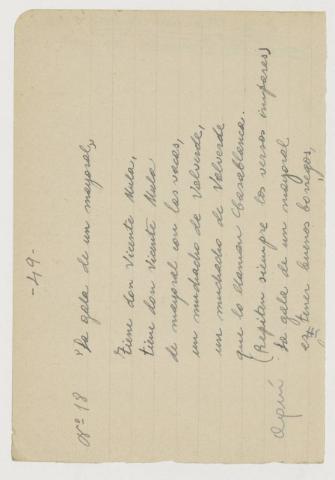 -49-
Nº 18 "La gala de un mayoral"
Tiene don Vicente Mula,
tiene don Vicente Mula
de mayoral con las vacas,
un muchacho de Valverde,
un muchacho de Valverde
que lo llaman Casablanca.
(Repiten siempre los versos impares)
La gala de un mayoral
es tener buenos borregos,
Aquí